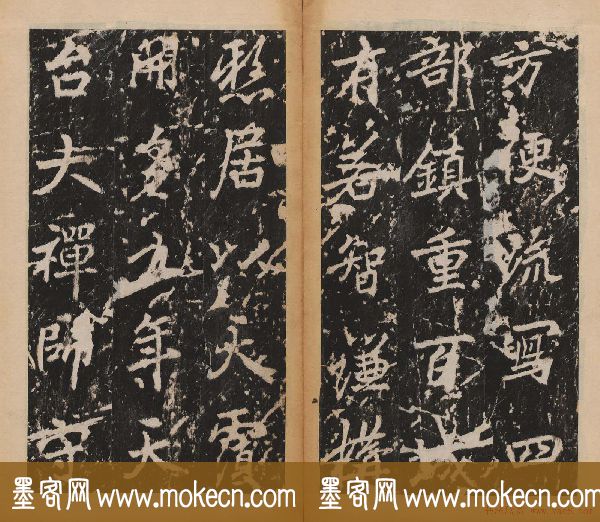 方便流寫四
部鎮重百城
有若智謙攜
居以天寶
開多五年天
台大禪師守
墨客网 www.mokecn.com 墨客网 www.mokecn.com